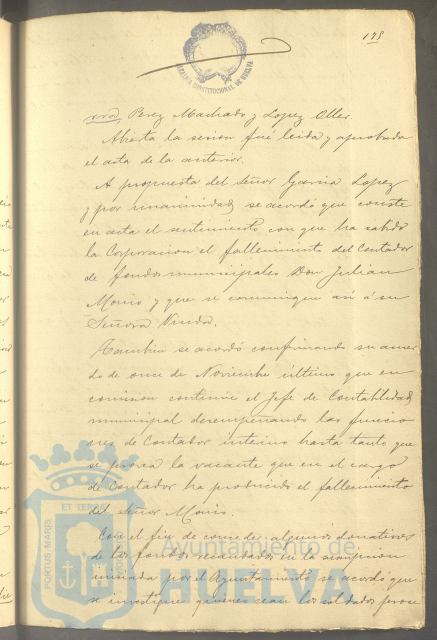 175
ALCALDIA CONSTITUCIONAL DE HUELVA
Perez Machado y Lopez Oller.
Abierta la sesion fué leida y aprobada
el acta de la anterior.
A propuesta del señor Garcia Lopez
y por unanimidad, se acordó que conste
en acta el sentimiento con que ha sabido
la Corporacion el fallecimiento del Contador
de fondos municipales Don Julian
y que se comunique asi á su
Señora Viuda.
Tambien se acordó confirmando su acuer
do de once de Noviembre último que en
comision continue el Jefe de Contabilidad
municipal desempeñando las funcio
nes de Contador interino hasta tanto que
se provea la vacante que en el cargo
de Contador ha producido el fallecimiento
del Señor
Con el fin de conceder algunos donativos
de los fondos recaudados en la suscripcion
iniciada por el Ayuntamiento se acordó que
se investigue quienes sean los soldados
PORTUS MARIS
ET TERRÆ
Ayuntamiento de
HUELVA